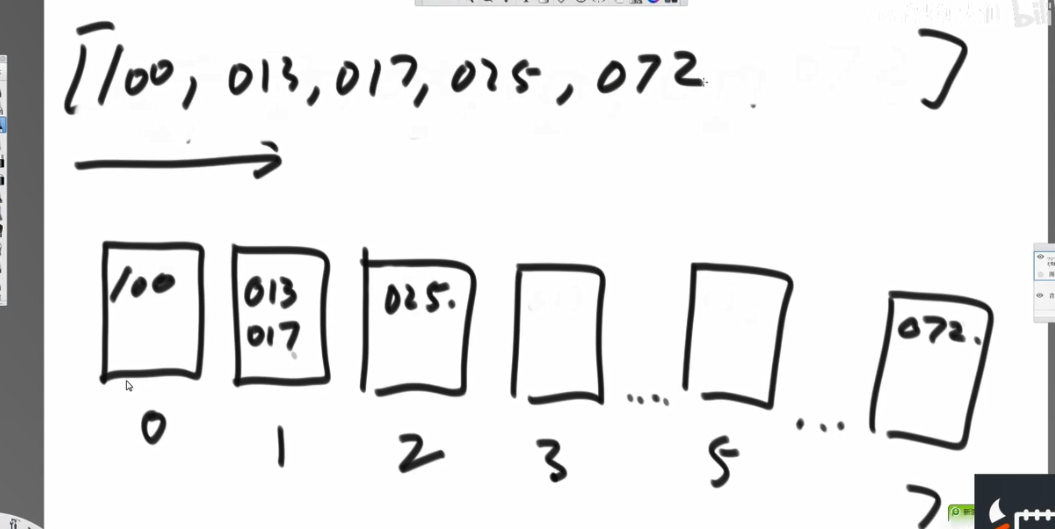 [100, 013, 017, 025, 072 ]
100
013
017
025.
072.
0 1 2 3 .... 5 ... 7